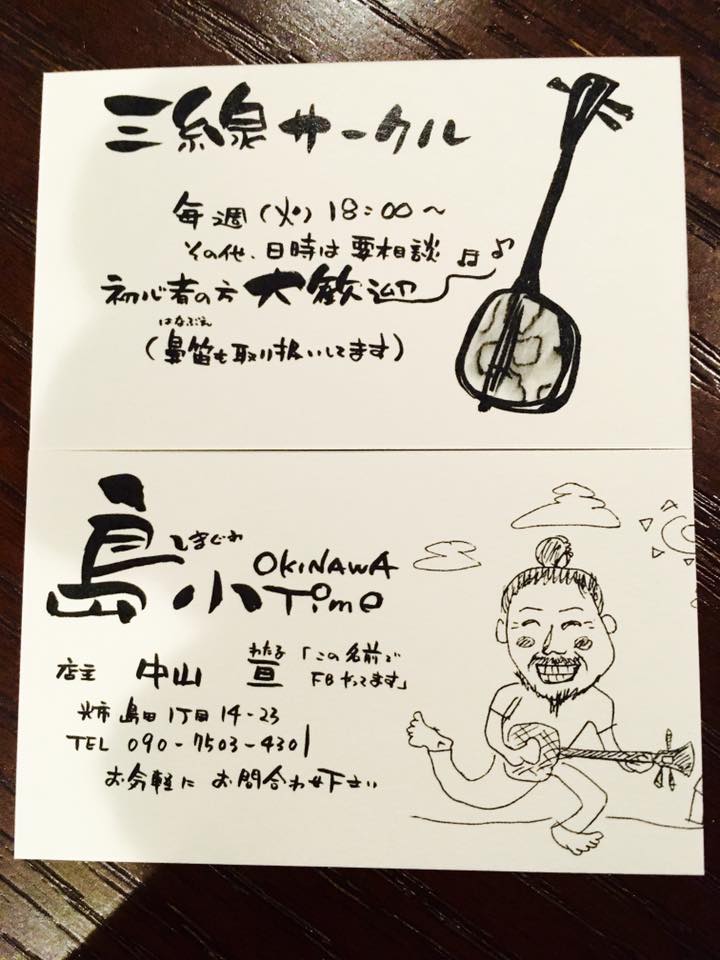 三線サークル
毎週(火)18:00〜
その他、日時は要相談
初心者の方大歓迎
はなぶえ
(鼻笛も取り扱いしてます)
島小
しまぐわ
OKINAWA
Time
店主 中山 亘
わたる
「この名前で
FBやってます」
光市島田1丁目14-23
TEL 090-7503-4301
お気軽にお問合わせ下さい